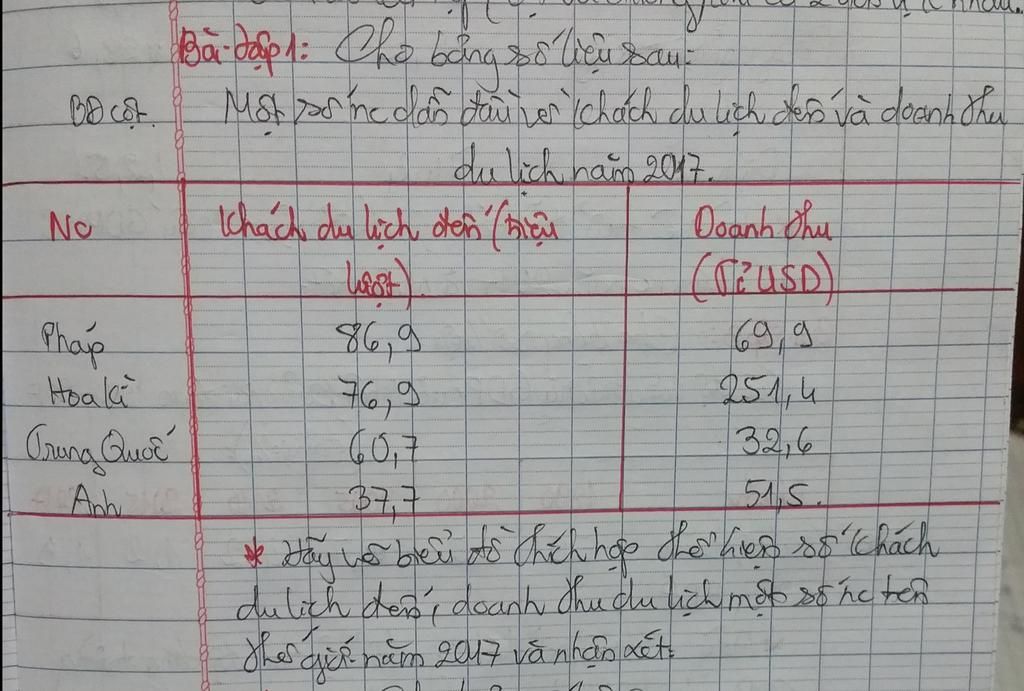 Bài tập 1: Cho bảng số liệu sau:
BĐ cột. Một số nc dẫn đầu về khách du lịch đến và doanh thu
du lịch năm 2017.
Nc Khách du lịch đến (triệu lượt) Doanh thu (Tỉ USD)
Pháp 86,9 69,9
Hoa kì 76,9 251,4
Trung Quốc 60,7 32,6
Anh 37,7 51,5.
* Hãy vẽ biểu đồ thích hợp thể hiện số khách
du lịch đến, doanh thu du lịch một số nc trên
thế giới năm 2017 và nhận xét.